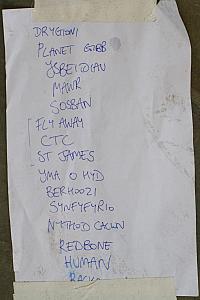 DRYGIONI
PLANET
YSBEIDIAU
MAWR
SOSBAN
FLY AWAY
CTC
ST JAMES
YMA O HYD
BERHOOZI
SYNFYFYRIO
NYTHOD CACWN
REDBONE
HUMAN